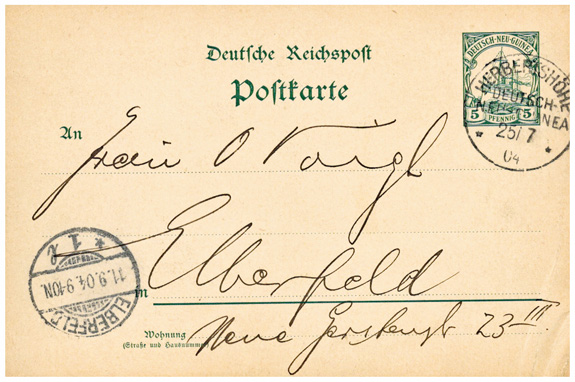 Deutsche Reichspost
Postkarte
DEUTSCH-NEU-GUINEA
5 PFENNIG 5
HERBERTSHÖHE
DEUTSCH-
NEUGUINEA
* 25/7 *
04
An
Frau O Voigt
Elberfeld
in
Neue Gerstenstr 23 III
Wohnung
(Straße und Hausnummer)
ELBERFELD
11.9.04.9-10N.
* 1 l